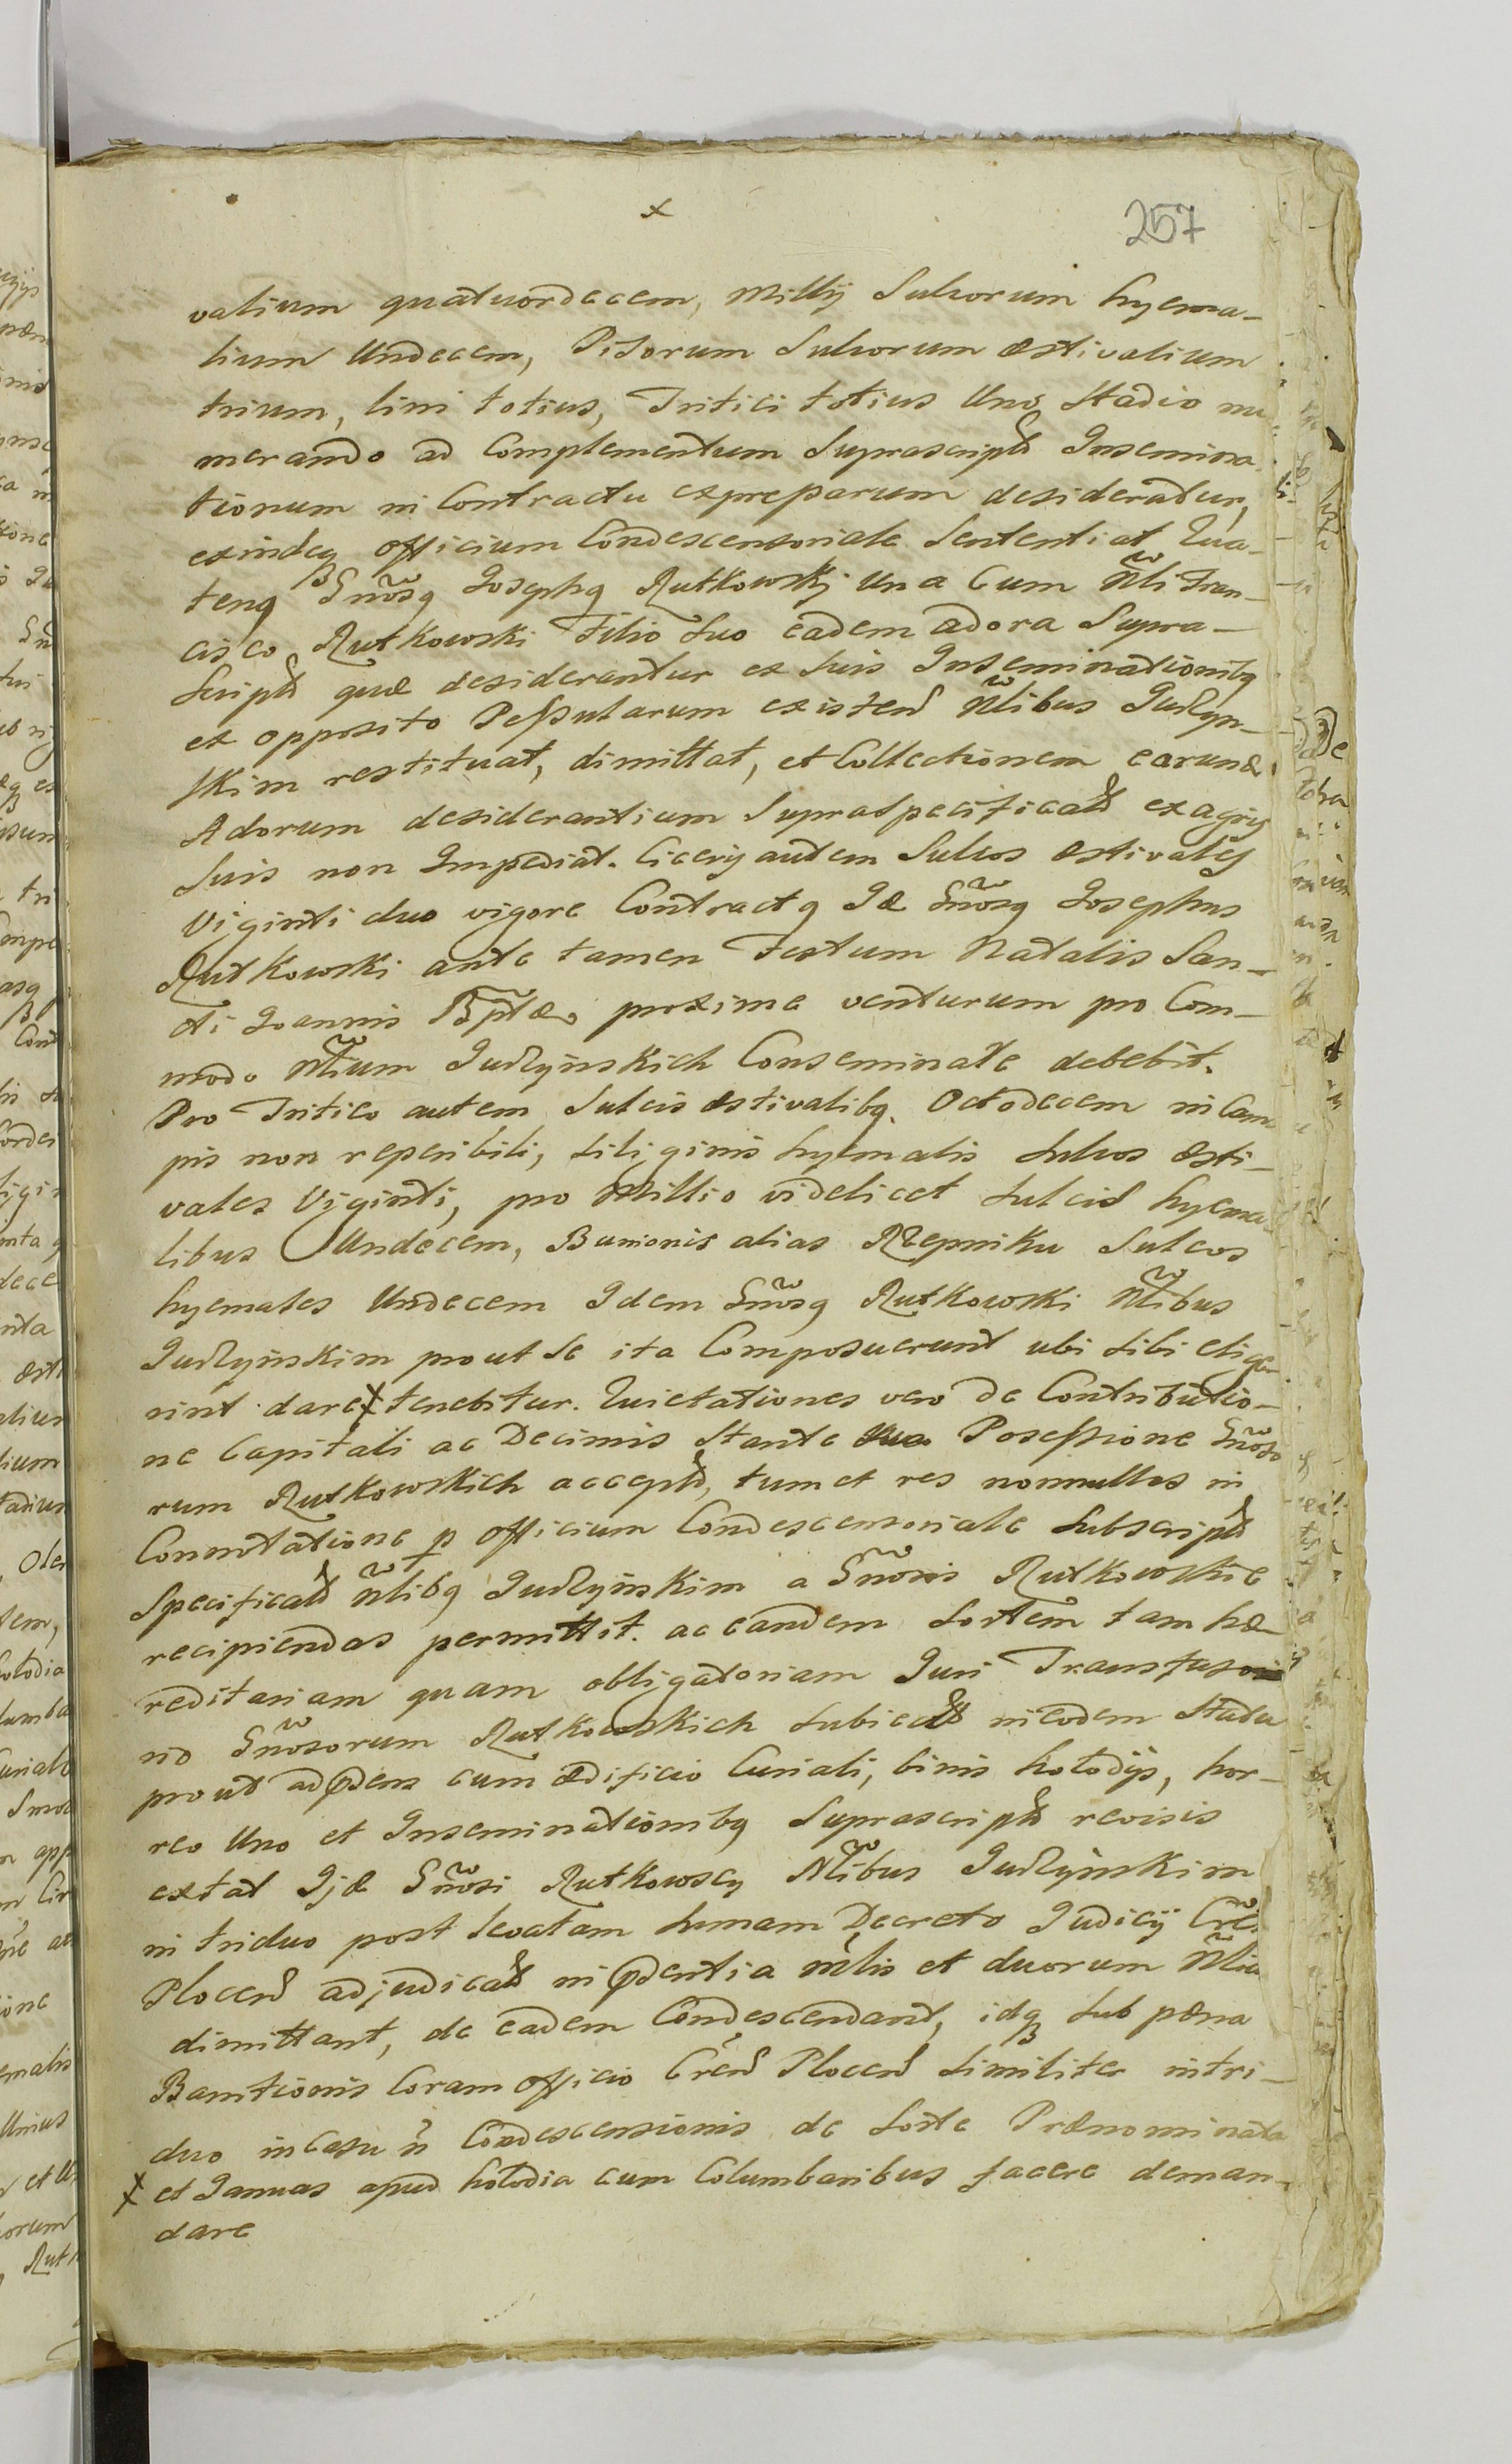 257
valium quatuordecem, Millij Sulcorum hyema-
lium Undecem, Pisorum Sulcorum æstivalium
trium, lini totius, Tritici totius Uno Stadio nu
merando ad Complementum Suprascript Insemina-
tionum in Contractu expressarum desideratur,
exindeq officium Condescensoriale Sententiat Qua-
tenq Gnõsq Josephq Rutkowskj una Cum Nli Fran-
cisco Rutkowski Filio Suo eadem adora Supra-
Script quæ desiderantur ex Suis Inseminationibq
ex opposito Pessularum existen Nlibus Gudzyn-
skim restituat, dimittat, et Collectionem earund
Adorum desiderantium Supraspecificat ex agris
Suis non Impediat. Ciceris autem Sulcos æstivales
Viginti duo vigore Contractq Id Gnõsq Josephus
Rutkowski ante tamen Festum Natalis San-
cti Joannis Bptæ proxime venturum pro Com-
modo Nlium Gudzynskich Conseminare debebit.
Pro Tritico autem Sulcis æstivalibq Octodecem in Cam
pis non reperibili, siliginis hyemalis Sulcos æsti-
vales Viginti, pro Millio videlicet Sulcis hyema-
libus Undecem, Bunionis alias Rzepniku Sulcos
hyemales Undecem Idem Gnõsq Rutkowski Nlibus
Gudzynskim prout se ita Composuerunt ubi sibi elige-
rint dare x tenebitur. Quietationes vero de Contributio-
ne Capitali ac Decimis Stante sua Possessione Gnõso
rum Rutkowskich accept, tum et res nonnullas in
Connotatione p officium Condescensoriale Subscript
Specificat Nlibq Gudzynskim a Gnõsis Rutkowskie
recipiendas permittit. ac eandem Sortem tam hæ-
reditariam quam obligatoriam Juri Transfuso
no Gnõsorum Rutkowskich Subiect in eodem Statu
prout ad pdens cum ædificio Curiali, binis hołodijs, hor-
reo Uno et Inseminationibq Suprascript revisis
extat Ijd Gnõsi Rutkowscy Nlibus Gudzynskim
in triduo post levatam humam Decreto Judicij Crêi
Plocen adjudicat in pdentia mlis et duorum Nliu
dimittant, de eadem Condescendant, idq sub pæna
Bannitionis Coram officio Crên Plocen similiter in tri-
duo in casu n Condescensionis de Sorte Prænominata
x et Januas apud hołodia cum Columbaribus facere deman-
dare